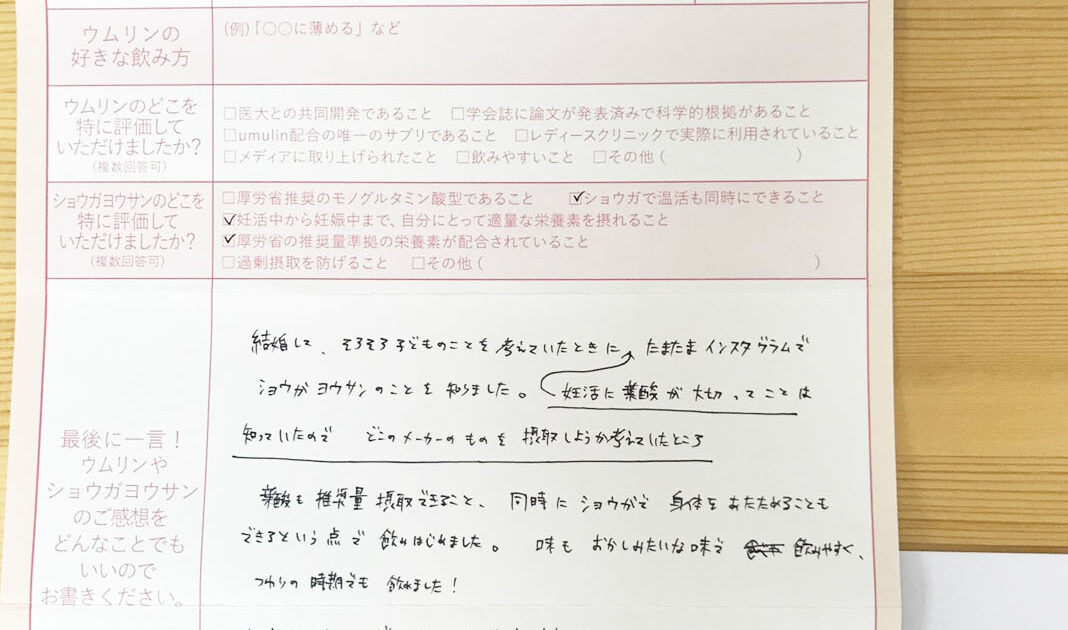 ウムリンの
好きな飲み方
(例)「○○に薄める」など
ウムリンのどこを
特に評価して
いただけましたか?
(複数回答可)
□医大との共同開発であること □学会誌に論文が発表済みで科学的根拠があること
□umulin配合の唯一のサプリであること □レディースクリニックで実際に利用されていること
□メディアに取り上げられたこと □飲みやすいこと □その他( )
ショウガヨウサンのどこを
特に評価して
いただけましたか?
(複数回答可)
□厚労省推奨のモノグルタミン酸型であること ☑ショウガで温活も同時にできること
☑妊活中から妊娠中まで、自分にとって適量な栄養素を摂れること
☑厚労省の推奨量準拠の栄養素が配合されていること
□過剰摂取を防げること □その他( )
最後に一言!
ウムリンや
ショウガヨウサン
のご感想を
どんなことでも
いいので
お書きください。
結婚して、そろそろ子どものことを考えていたときに たまたまインスタグラムで
ショウガヨウサンのことを知りました。 妊活に葉酸が大切ってことは
知っていたので どこのメーカーのものを摂取しようか考えていたところ
葉酸も推奨量摂取できること、同時にショウガで身体をあたためることも
できるという点で飲みはじめました。 味もおかしみたいな味で 飲みやすく、
つわりの時期でも飲めました!